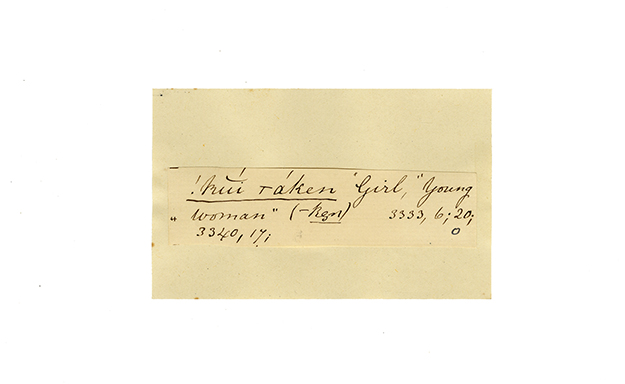 !kúi táken "Girl," "Young
" woman" (-ken) 3333, 6; 20;
3340, 17;